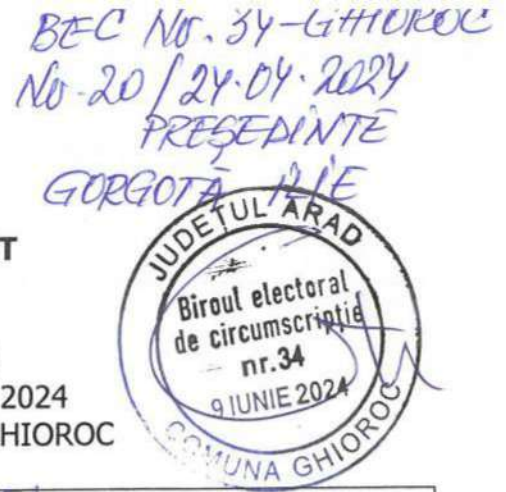 BEC Nr. 34-GHIOROC
Nr. 20 / 24.04.2024
PREȘEDINTE
GORGOTĂ ILIE
T
JUDEȚUL ARAD
Biroul electoral
de circumscripție
nr.34
9 IUNIE 2024
COMUNA GHIOROC
2024
HIOROC